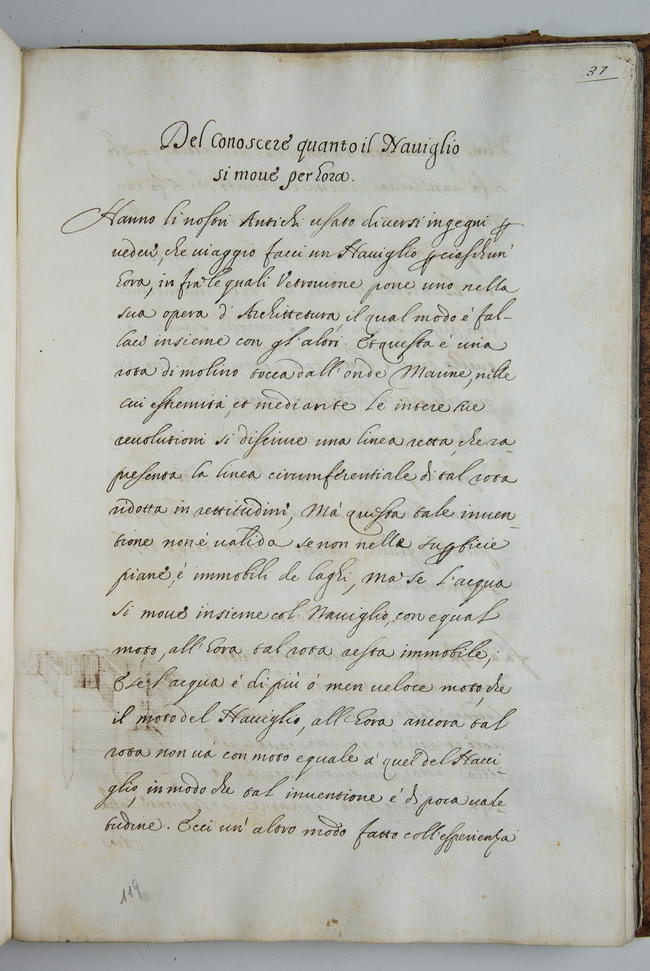 37
Del conoscere quanto il Naviglio
si move per hora.
Hanno li nostri Antichi usato diversi ingegni p
vedere, che viaggio facci un Naviglio p ciaschun'
hora, in fra le quali Vetruvione pone uno nella
sua opera d'Architettura il qual modo é fal-
lace insieme con gl'altri. Et questa é una
rota di molino tocca dall'onde Marine, nille
cui estremitá, et mediante le intere sue
revolutioni si discrive una linea retta, che ra-
presenta la linea circumferentiale di tal rota
ridotta in rettitudine, Má questa tale inven-
tione non é valida se non nelle superficie
piane, é immobili de laghi, ma se l'acqua
si move insieme col Naviglio, con equal
moto, all'hora tal rota resta immobile,
E se l'acqua é di piú ó men veloce moto, che
il moto del Naviglio, all'hora ancora tal
rota non vá con moto equale á quel del Navi-
glio, in modo che tal inventione é di poca vale-
tudine. Ecci un'altro modo fatto coll'esperienza
119